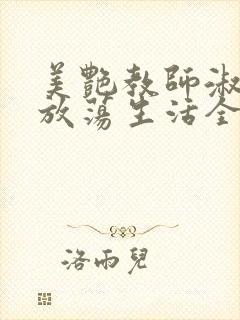 美艷教師淑
放蕩生活全
洛雨兒